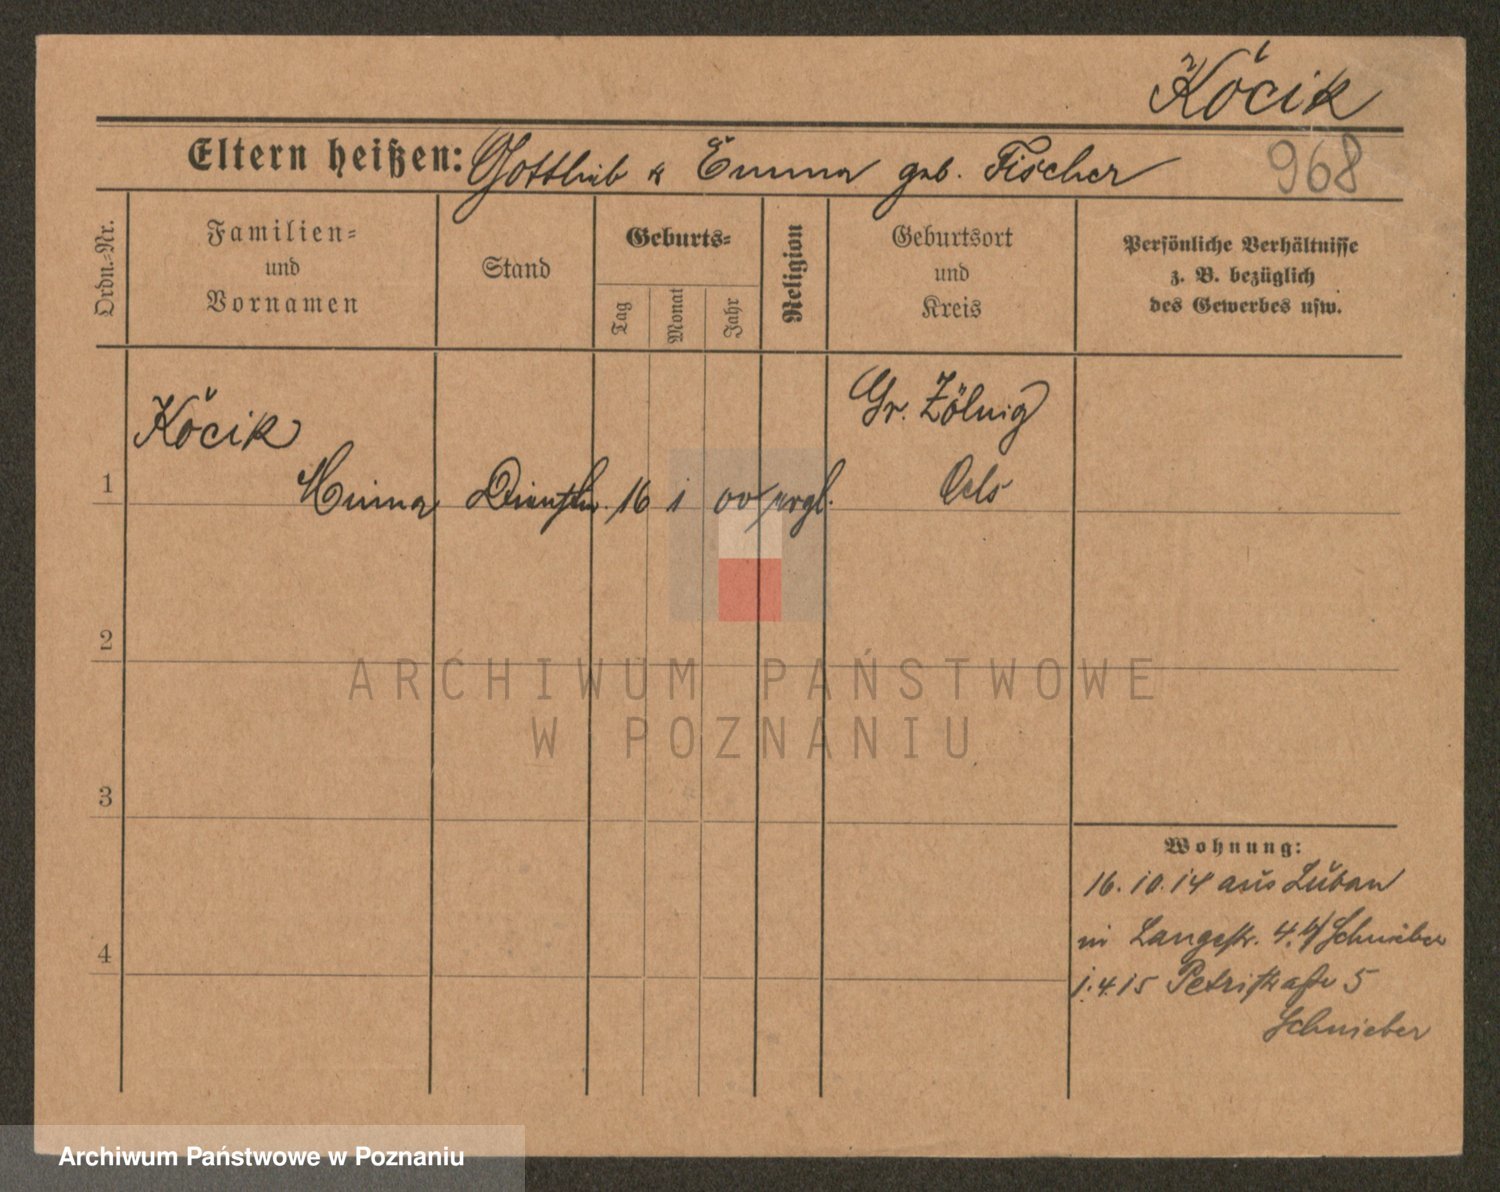 Köcik
Eltern heißen: Gottlieb u Emma geb. Fischer
968
Ordn.-Nr.
Familien-
und
Vornamen
Stand
Geburts-
Tag
Monat
Jahr
Religion
Geburtsort
und
Kreis
Persönliche Verhältnisse
z. B. bezüglich
des Gewerbes usw.
Köcik
Gr. Zölnig
1 Minna Dienstm. 16 1 00 evgl. Oels
2
ARCHIWUM PAŃSTWOWE
W POZNANIU
3
Wohnung:
16.10.14 aus Luban
in Langestr. 4. b/ Schnieber
4
1.4.15 Petristraße 5
Schnieber
Archiwum Państwowe w Poznaniu